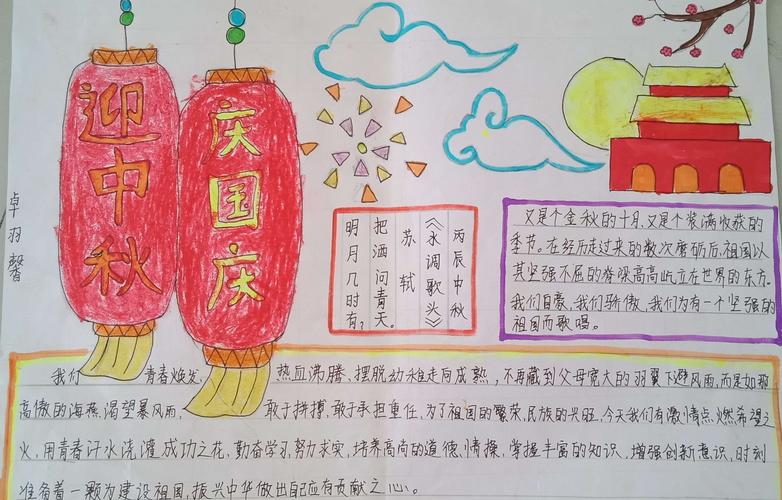 迎中秋
庆国庆
卓羽馨
丙辰中秋
《水调歌头》
苏轼
把洒问青天。
明月几时有?
又是个金秋的十月,又是个装满收获的
季节。在经历走过来的数次磨砺后,祖国以
其坚强不屈的脊深高高屹立在世界的东方。
我们自豪,我们骄傲,我们为有一个坚强的
祖国而歌唱。
我们青春焕发、热血沸腾、摆脱幼稚走向成熟,不再藏到父母宽大的羽翼下避风雨,而是如那
高傲的海燕渴望暴风雨、敢于拼搏、敢于承担重任,为了祖国的繁荣、民族的兴旺,今天我们有激情点燃希望之
火,用青春汗水浇灌成功之花,勤奋学习,努力求实,培养高尚的道德、情操,掌握丰富的知识,增强创新意识,时刻
准备着一颗为建设祖国,振兴中华做出自己应有贡献之心。